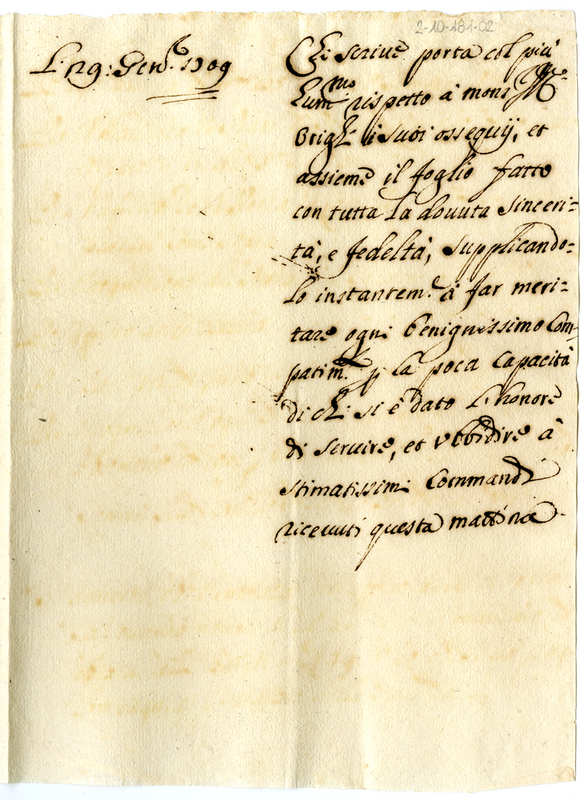 2-10-181-02
L: 29: Gen.º 1709
Chi scrive porta col più
hum.mo rispetto à mons.
Brigl. i suoi ossequij, et
assieme il foglio fatto
con tutta la dovuta sinceri=
tà, e fedeltà, supplicando=
lo instantem.e à far meri=
tare ogni benignissimo Com=
patim.to la poca capacità
di chi si è dato l'honore
di servire, et ubbidire à
stimatissimi Commandi
ricevuti questa mattina